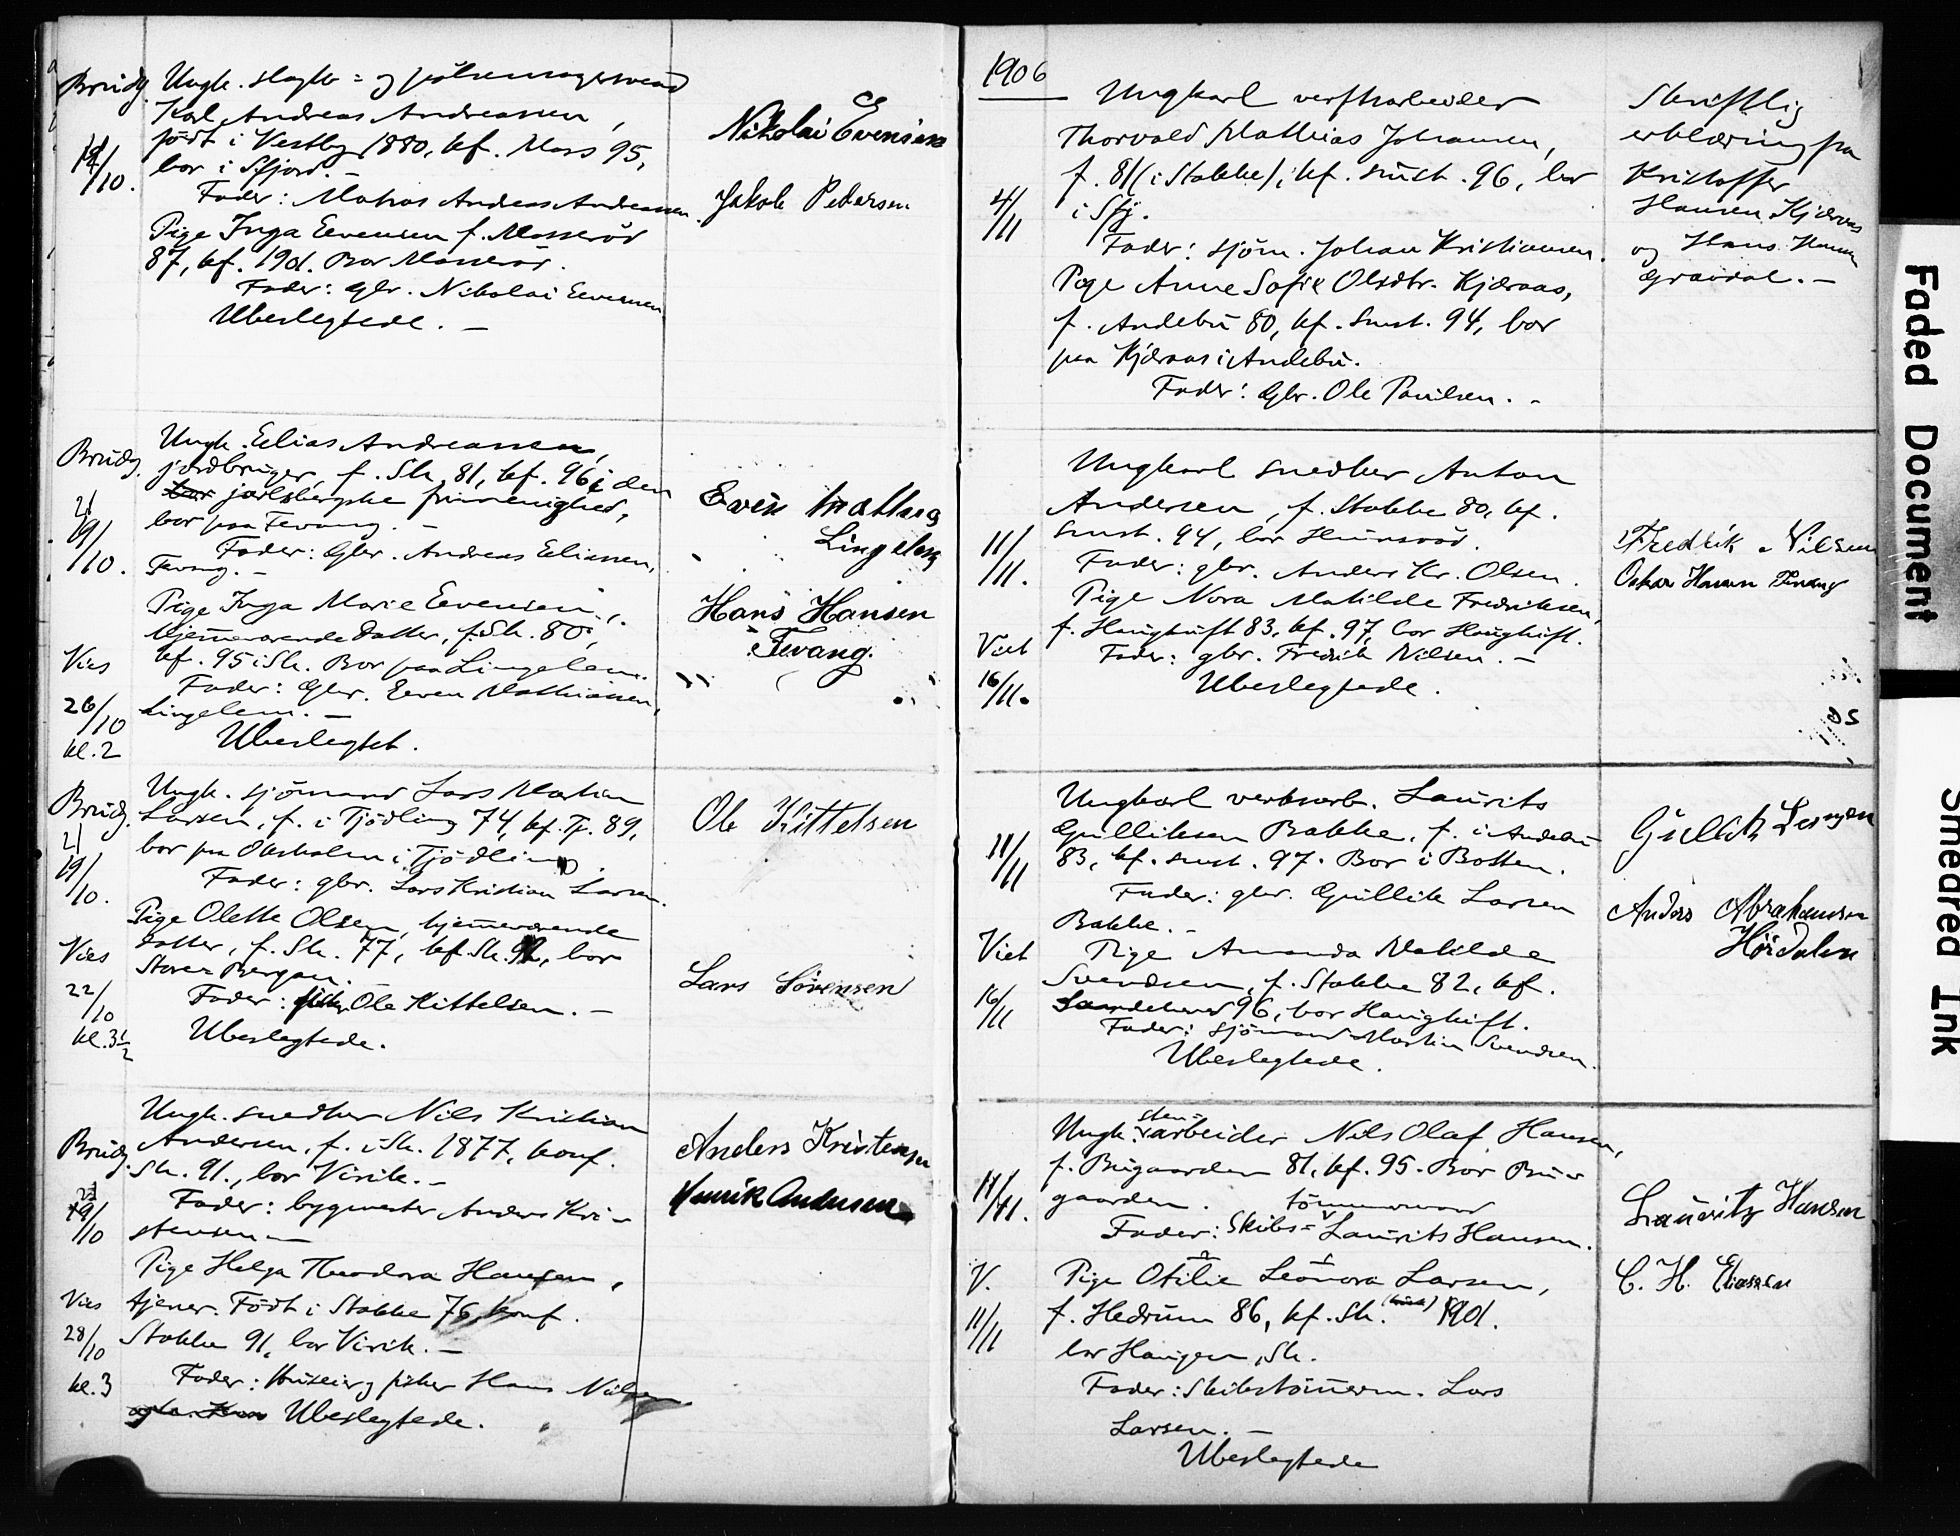 Brudg.
Ungk. slagter- og pølsemagersvend
Karl Andreas Andreassen,
født i Vestby 1880, kf. Moss 95,
bor i Sfjord.
14/10.
Fader: Mathias Andreas Andreassen.
Pige Inga Eevensen f. Mosserød
87, kf. 1901. Bor Mosserød.
Fader: Gbr. Nikolai Eevensen
Ubeslegtede. —
Nikolai Evensen
Jakob Pedersen
Brudg.
Ungk. Eelias Andreassen,
jordbruger, f. Sh. 81, kf. 96 i den
jarlsbergske frimenighed,
bor paa Fevang. —
21
19/10.
Fader: Gbr. Andreas Eeliassen,
Fevang. —
Pige Inga Marie Eevensen,
hjemmeværende datter, f. Sh. 80,
kf. 95 i Sh. Bor paa Lingelem.
Fader: Gbr. Eeven Mathiassen,
Lingelem. —
Ubeslegtet.
Vies
26/10
kl. 2
Even Mathias
Lingelem
Hans Hansen
Fevang.
Brudg.
Ungk. sjømand Lars Martin
Larsen, f. i Tjødling 74, kf. Tj. 89,
bor paa Oksholm i Tjødling.
21
19/10.
Fader: gbr. Lars Kristian Larsen.
Pige Olette Olsen, hjemmeværende
datter, f. Sh. 77, kf. Sh. 92, bor
Store Bergan.
Fader: fisker Ole Kittelsen. —
Ubeslegtede.
Vies
22/10
kl. 3½
Ole Kittelsen
Lars Sørensen
Brudg.
Ungk. snedker Nils Kristian
Andersen, f. i Sh. 1877, konf.
Sh. 91, bor Virik. —
21
19/10
Fader: bygmester Anders Kri-
stensen —
Pige Helga Theodora Hansen,
tjener. Født i Stokke 76, konf.
Stokke 91, bor Virik. —
Fader: Huseier og fisker Hans Nilsen
Ubeslegtede.
Vies
28/10
kl. 3
Anders Kristensen
Henrik Andersen
1906
Ungkarl verftsarbeider
Thorvald Mathias Johansen,
f. 81 (i Stokke), kf. smst. 96, bor
i Sfj.
4/11
Fader: sjøm. Johan Kristiansen.
Pige Anne Sofie Olsdtr. Kjæraas,
f. Andebu 80, kf. smst. 94, bor
paa Kjæraas i Andebu.
Fader: Gbr. Ole Paulsen. —
Skriftlig
erklæring fra
Kristoffer
Hansen Kjæraas
og Hans Hansen
Gravdal. —
Ungkarl snedker Anton
Andersen, f. Stokke 80, kf.
smst. 94, bor Hunsrød.
11/11.
Fader: gbr. Anders Kr. Olsen.
Pige Nora Matilde Fredriksen,
f. Haughuft 83, kf. 97, bor Haughuft.
Fader: gbr. Fredrik Nilsen. —
Ubeslegtede.
Viet
16/11.
Fredrik Nilsen
Oskar Hansen Fevang
Ungkarl verksarb. Laurits
Gulliksen Bakke, f. i Andebu
83, kf. smst. 97. Bor i Botten.
11/11
Fader: gbr. Gullik Larsen
Bakke. —
Pige Amanda Matilde
Svendsen, f. Stokke 82, kf.
Sandeherred 96, bor Haughuft.
Fader: sjømand Martin Svendsen.
Ubeslegtede.
Viet
16/11
Gullik Larsen
Anders Abrahamsen
Hørdalen
Ungk. sten-
arbeider Nils Olaf Hansen,
f. Bugaarden 81, kf. 95. Bor Bu-
gaarden.
11/11.
Fader: Skibs-tømmermand Laurits Hansen.
Pige Otilie Leonora Larsen,
f. Hedrum 86, kf. Sh. 1901.
bor Haugen, Sh.
Fader: Skibstømmerm. Lars
Larsen. —
Ubeslegtede
V.
11/11
Lauritz Hansen
C. H. Eliassen
Faded Document
Smeared Ink